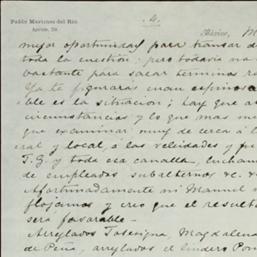 Pablo Martinez del Rio
.4.
mejor oportunidad para transar d
toda la cuestion; pero todavia no
bastante para sacar terminos
Ya te figurarás cuan espinosa
ble es la situacion; hay que a
circunstancias y lo que mas
que examinar muy de cerca á l
eral y local, á las veleidades y
T. G. y toda esa canalla, lucham
de empleados subalternos &c. &
Afortunadamente ni Manuel
flojamos y creo que el resulta
será favorable.—
Arreglados Tosesigna, Magdalena
de Peña, arreglados el lindero